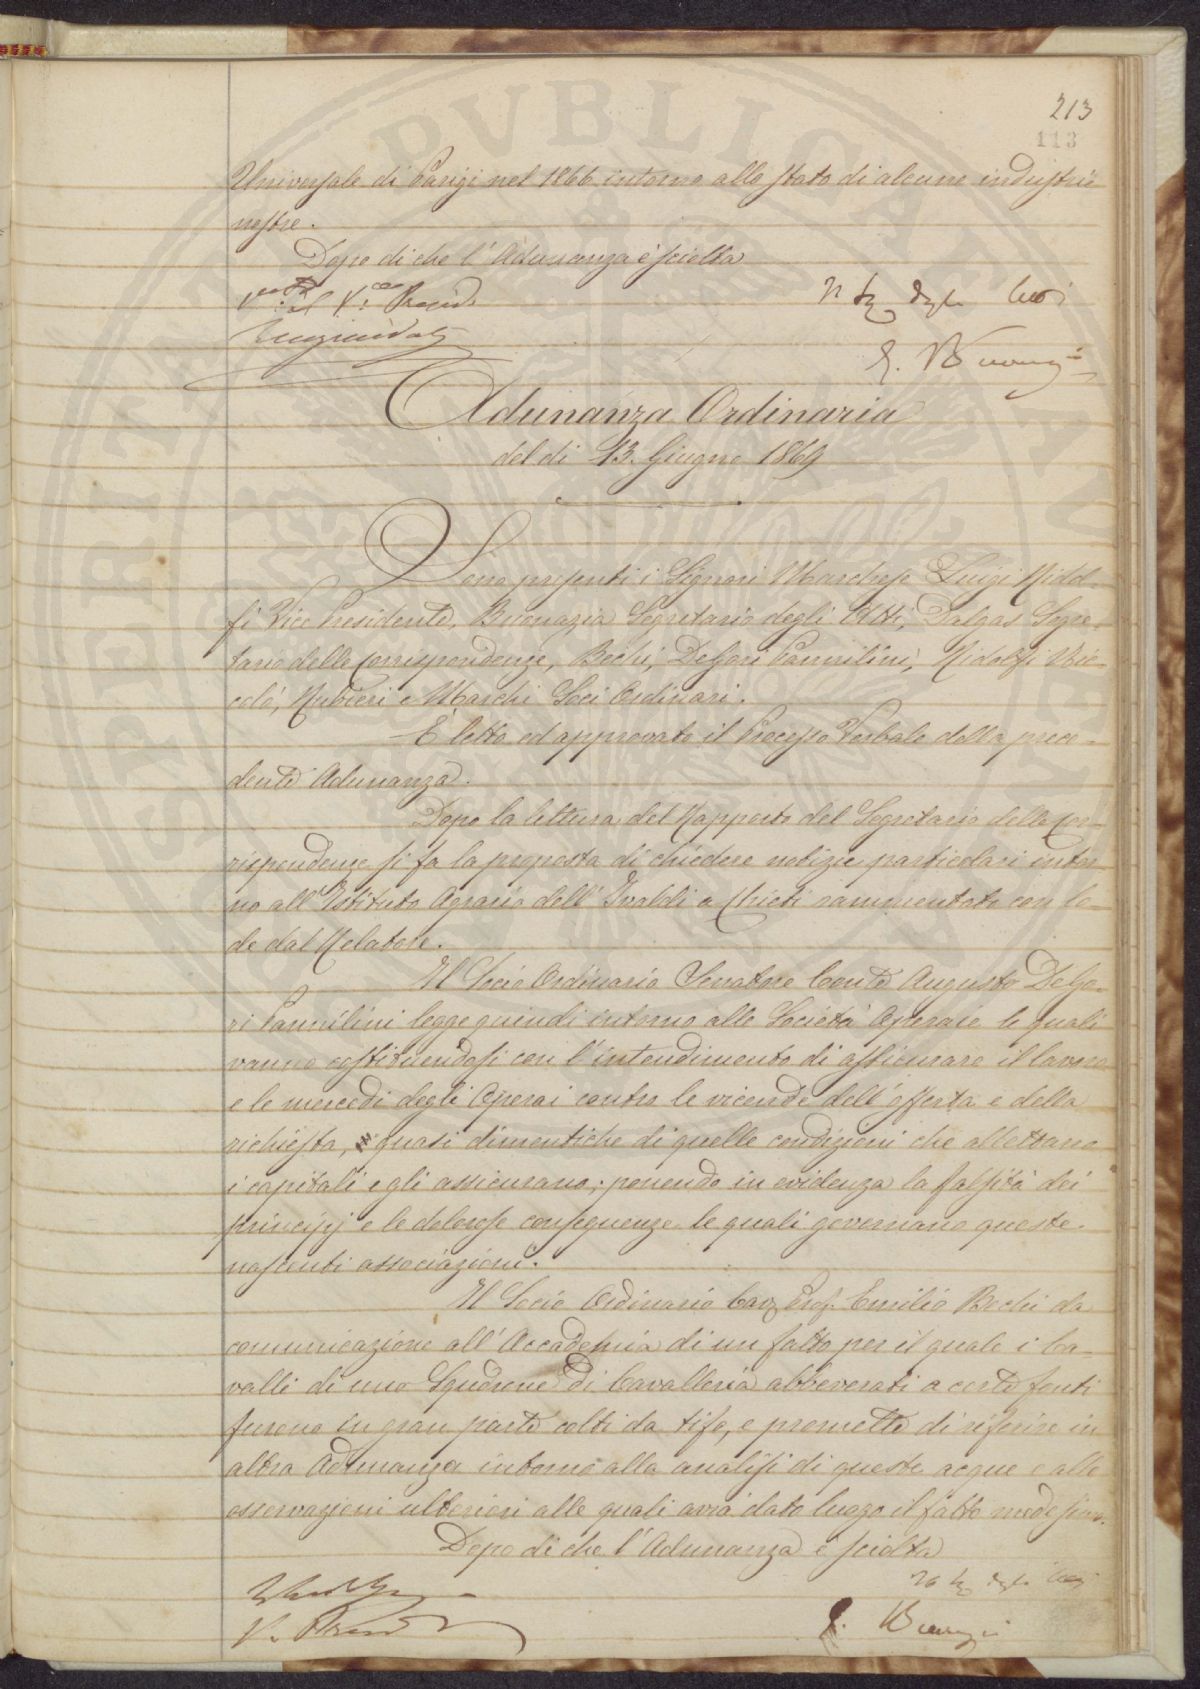 213
113
Universale di Parigi nel 1866 intorno allo stato di alcune industrie
nostre.
Dopo di che l'Adunanza è sciolta
V. Il V. Presid.
Il Seg degli Atti
E. Buonazia
Adunanza Ordinaria
del dì 13. Giugno 1869
Sono presenti i Signori Marchese Luigi Ridol-
fi Vice Presidente, Buonazia Segretario degli Atti, Dalgas Segre-
tario delle Corrispondenze, Bechi, DeGori Pannilini, Ridolfi Nic-
colò, Rubieri e Marchi Soci Ordinari.
È letto ed approvato il Processo Verbale della prece-
dente Adunanza.
Dopo la lettura del Rapporto del Segretario delle Cor-
rispondenze si fa la proposta di chiedere notizie particolari intor
no all'Istituto Agrario dell' a Chieti rammentato con lo-
de dal Relatore.
Il Socio Ordinario Senatore Conte Augusto DeGo-
ri Pannilini legge quindi intorno alle Società Operaie le quali
vanno costituendosi con l'intendimento di assicurare il lavoro
e le mercedi degli Operai contro le vicende dell'offerta e della
richiesta, quasi dimentiche di quelle condizioni che allettano
i capitali e gli assicurano; ponendo in evidenza la falsità dei
principj e le dolorose conseguenze le quali governano queste
nascenti associazioni.
Il Socio Ordinario Cav. Prof. Emilio Bechi dà
comunicazione all'Accademia di un fatto per il quale i Ca-
valli di uno Squdrone di Cavalleria abbeverati a certe fonti
furono in gran parte colti da tifo, e promette di riferire in
altra Adunanza intorno alla analisi di queste acque e alle
osservazioni ulteriori alle quali avrà dato luogo il fatto medesimo.
Dopo di che l'Adunanza è sciolta
V. Presid
Il Seg degli Atti
E. Buonazia